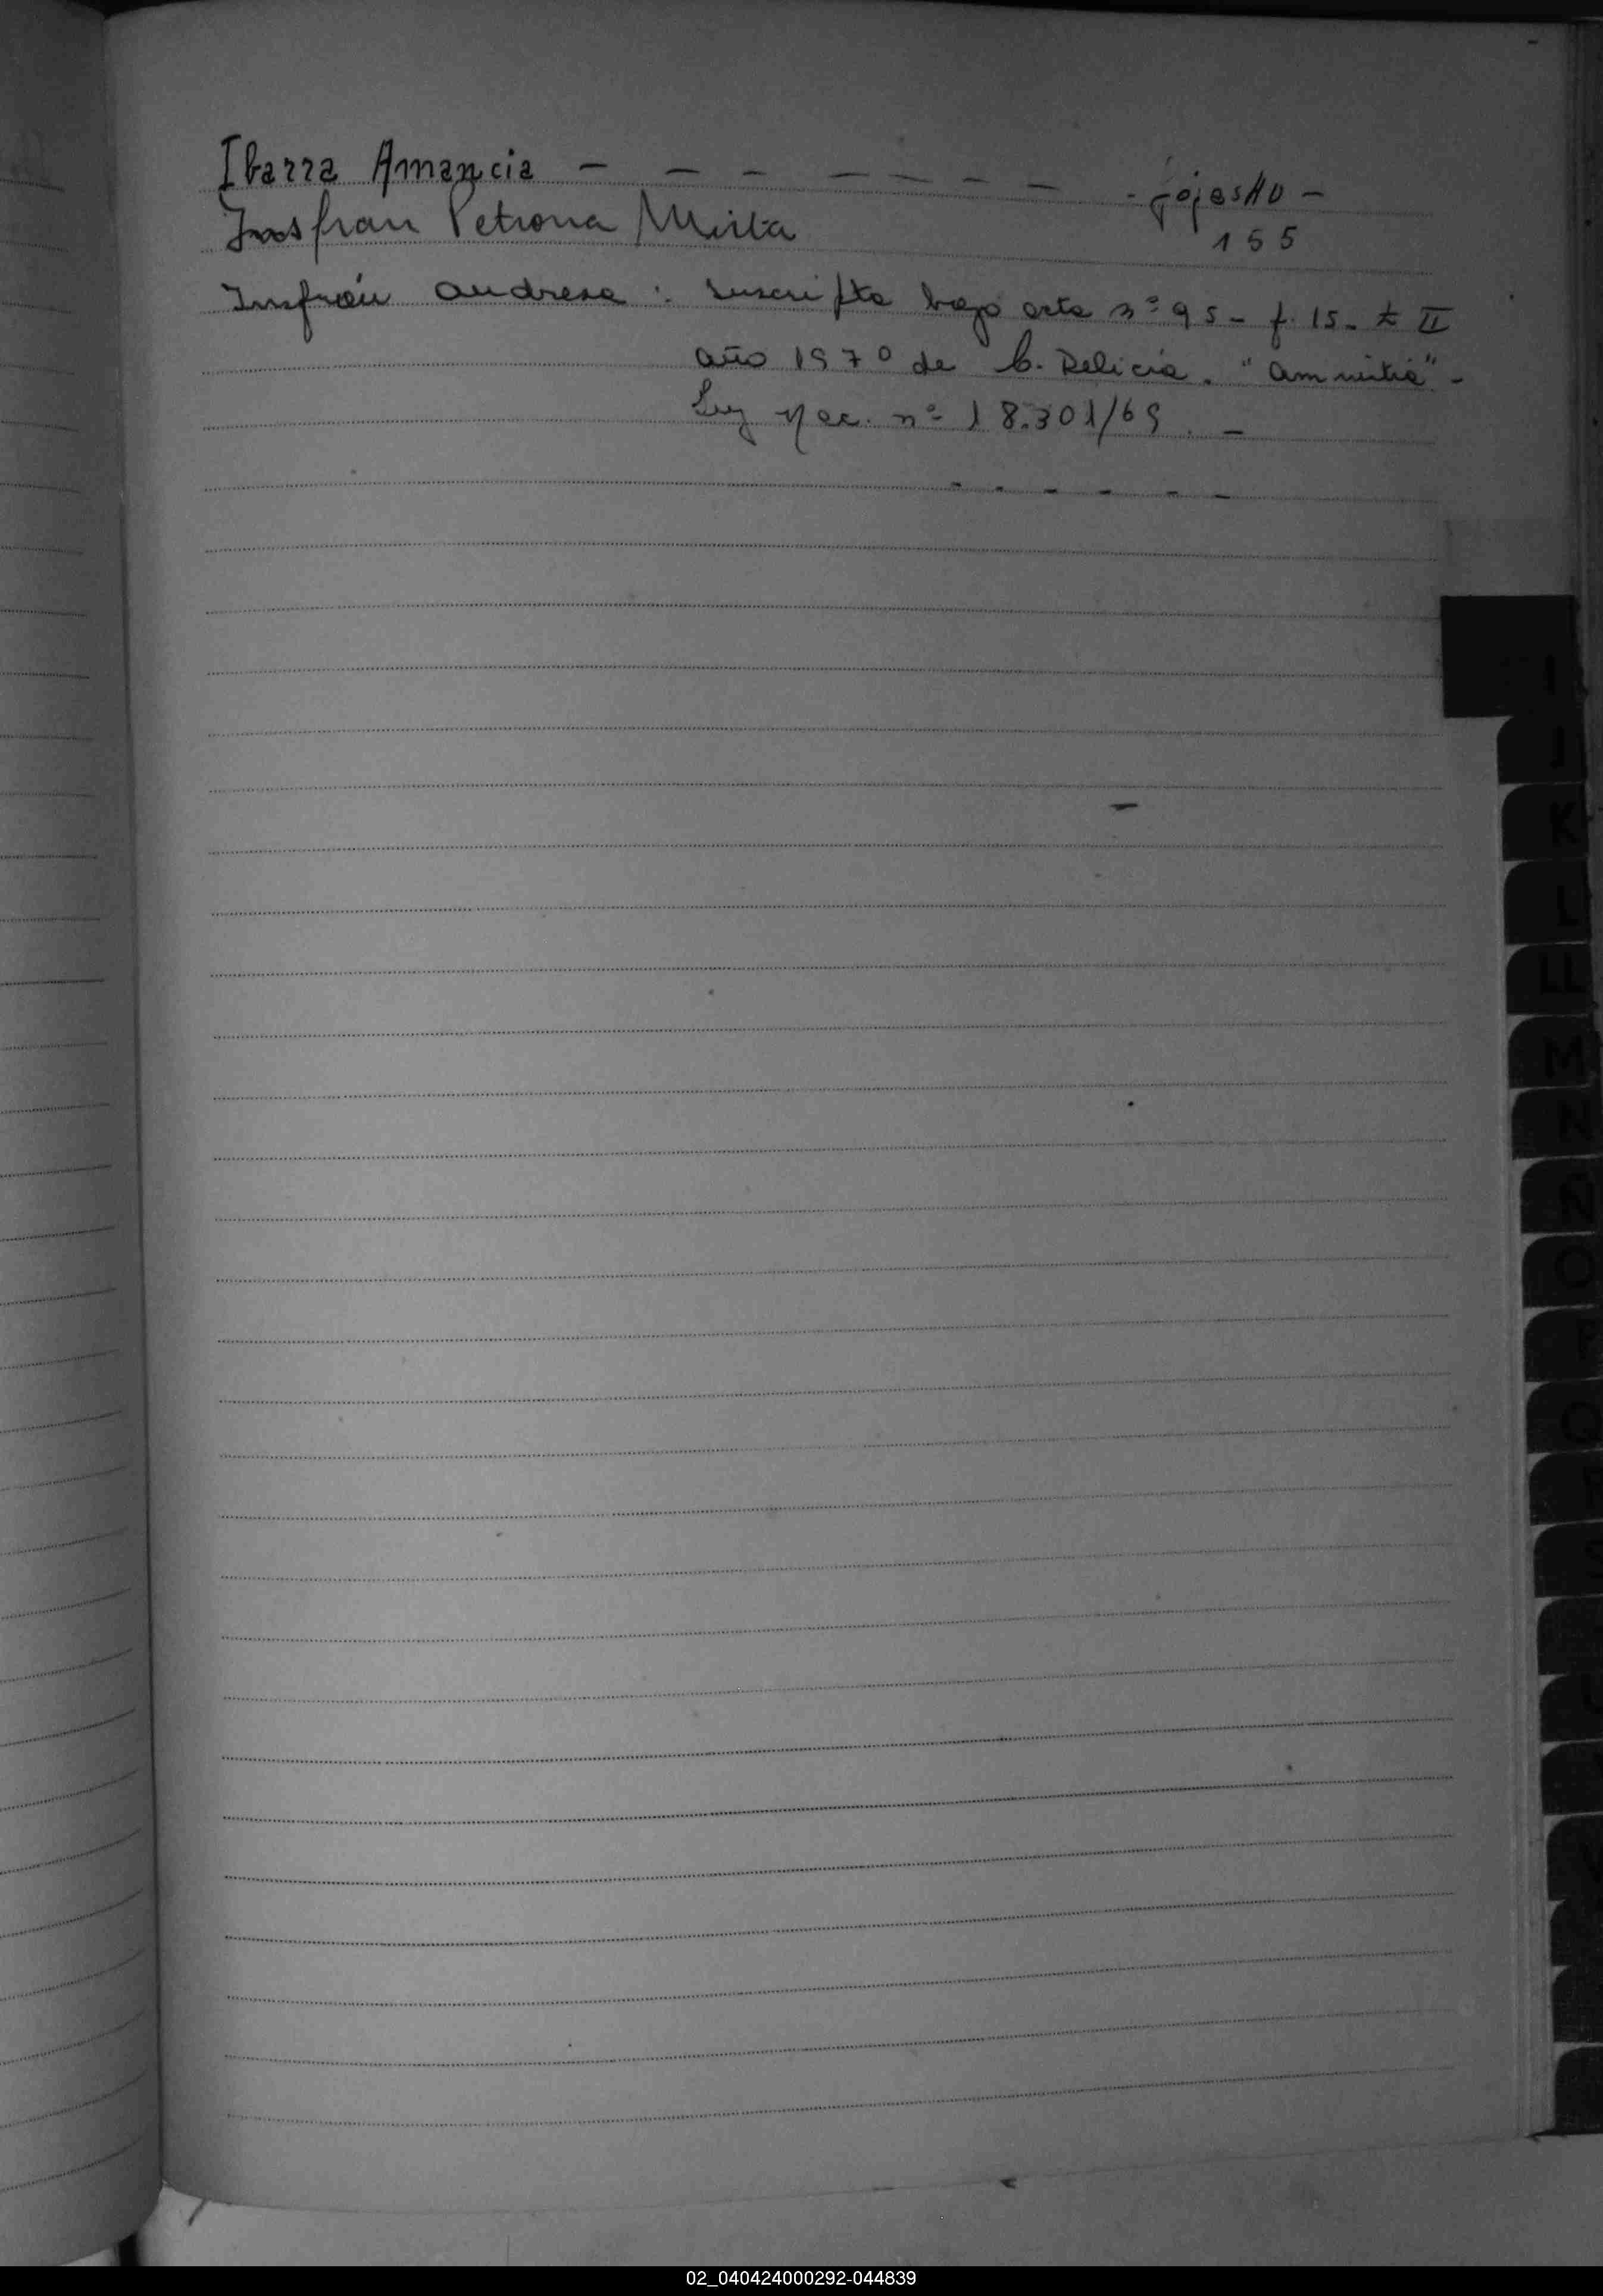 Ibarra Amancia - - - - - - - -fojas 110 -
Insfran Petrona Mirta 155
Insfrán Andresa : Inscripta bajo acta nº 95 - f. 15 - t II
año 1970 de C. Delicia. "Amnistia" -
Ley Nac. nº 18.301/69. -
- - - - - -
I
J
K
L
LL
M
N
Ñ
O
P
Q
R
S
02_040424000292-044839